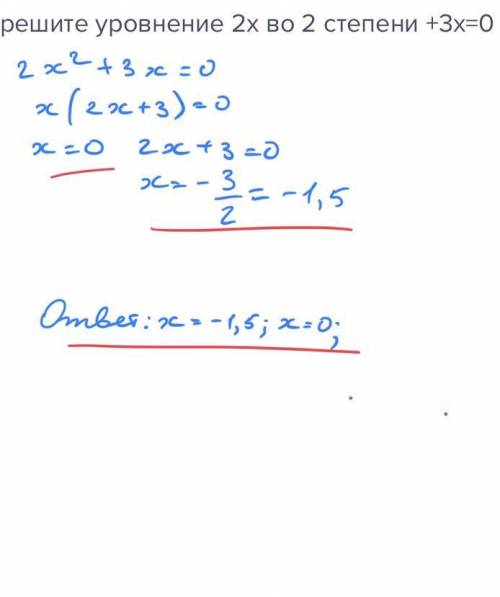 решите уровнение 2х во 2 степени +3х=0
2x²+3x=0
x(2x+3)=0
x=0 2x+3=0
x=-3/2=-1,5
Ответ: x=-1,5; x=0;